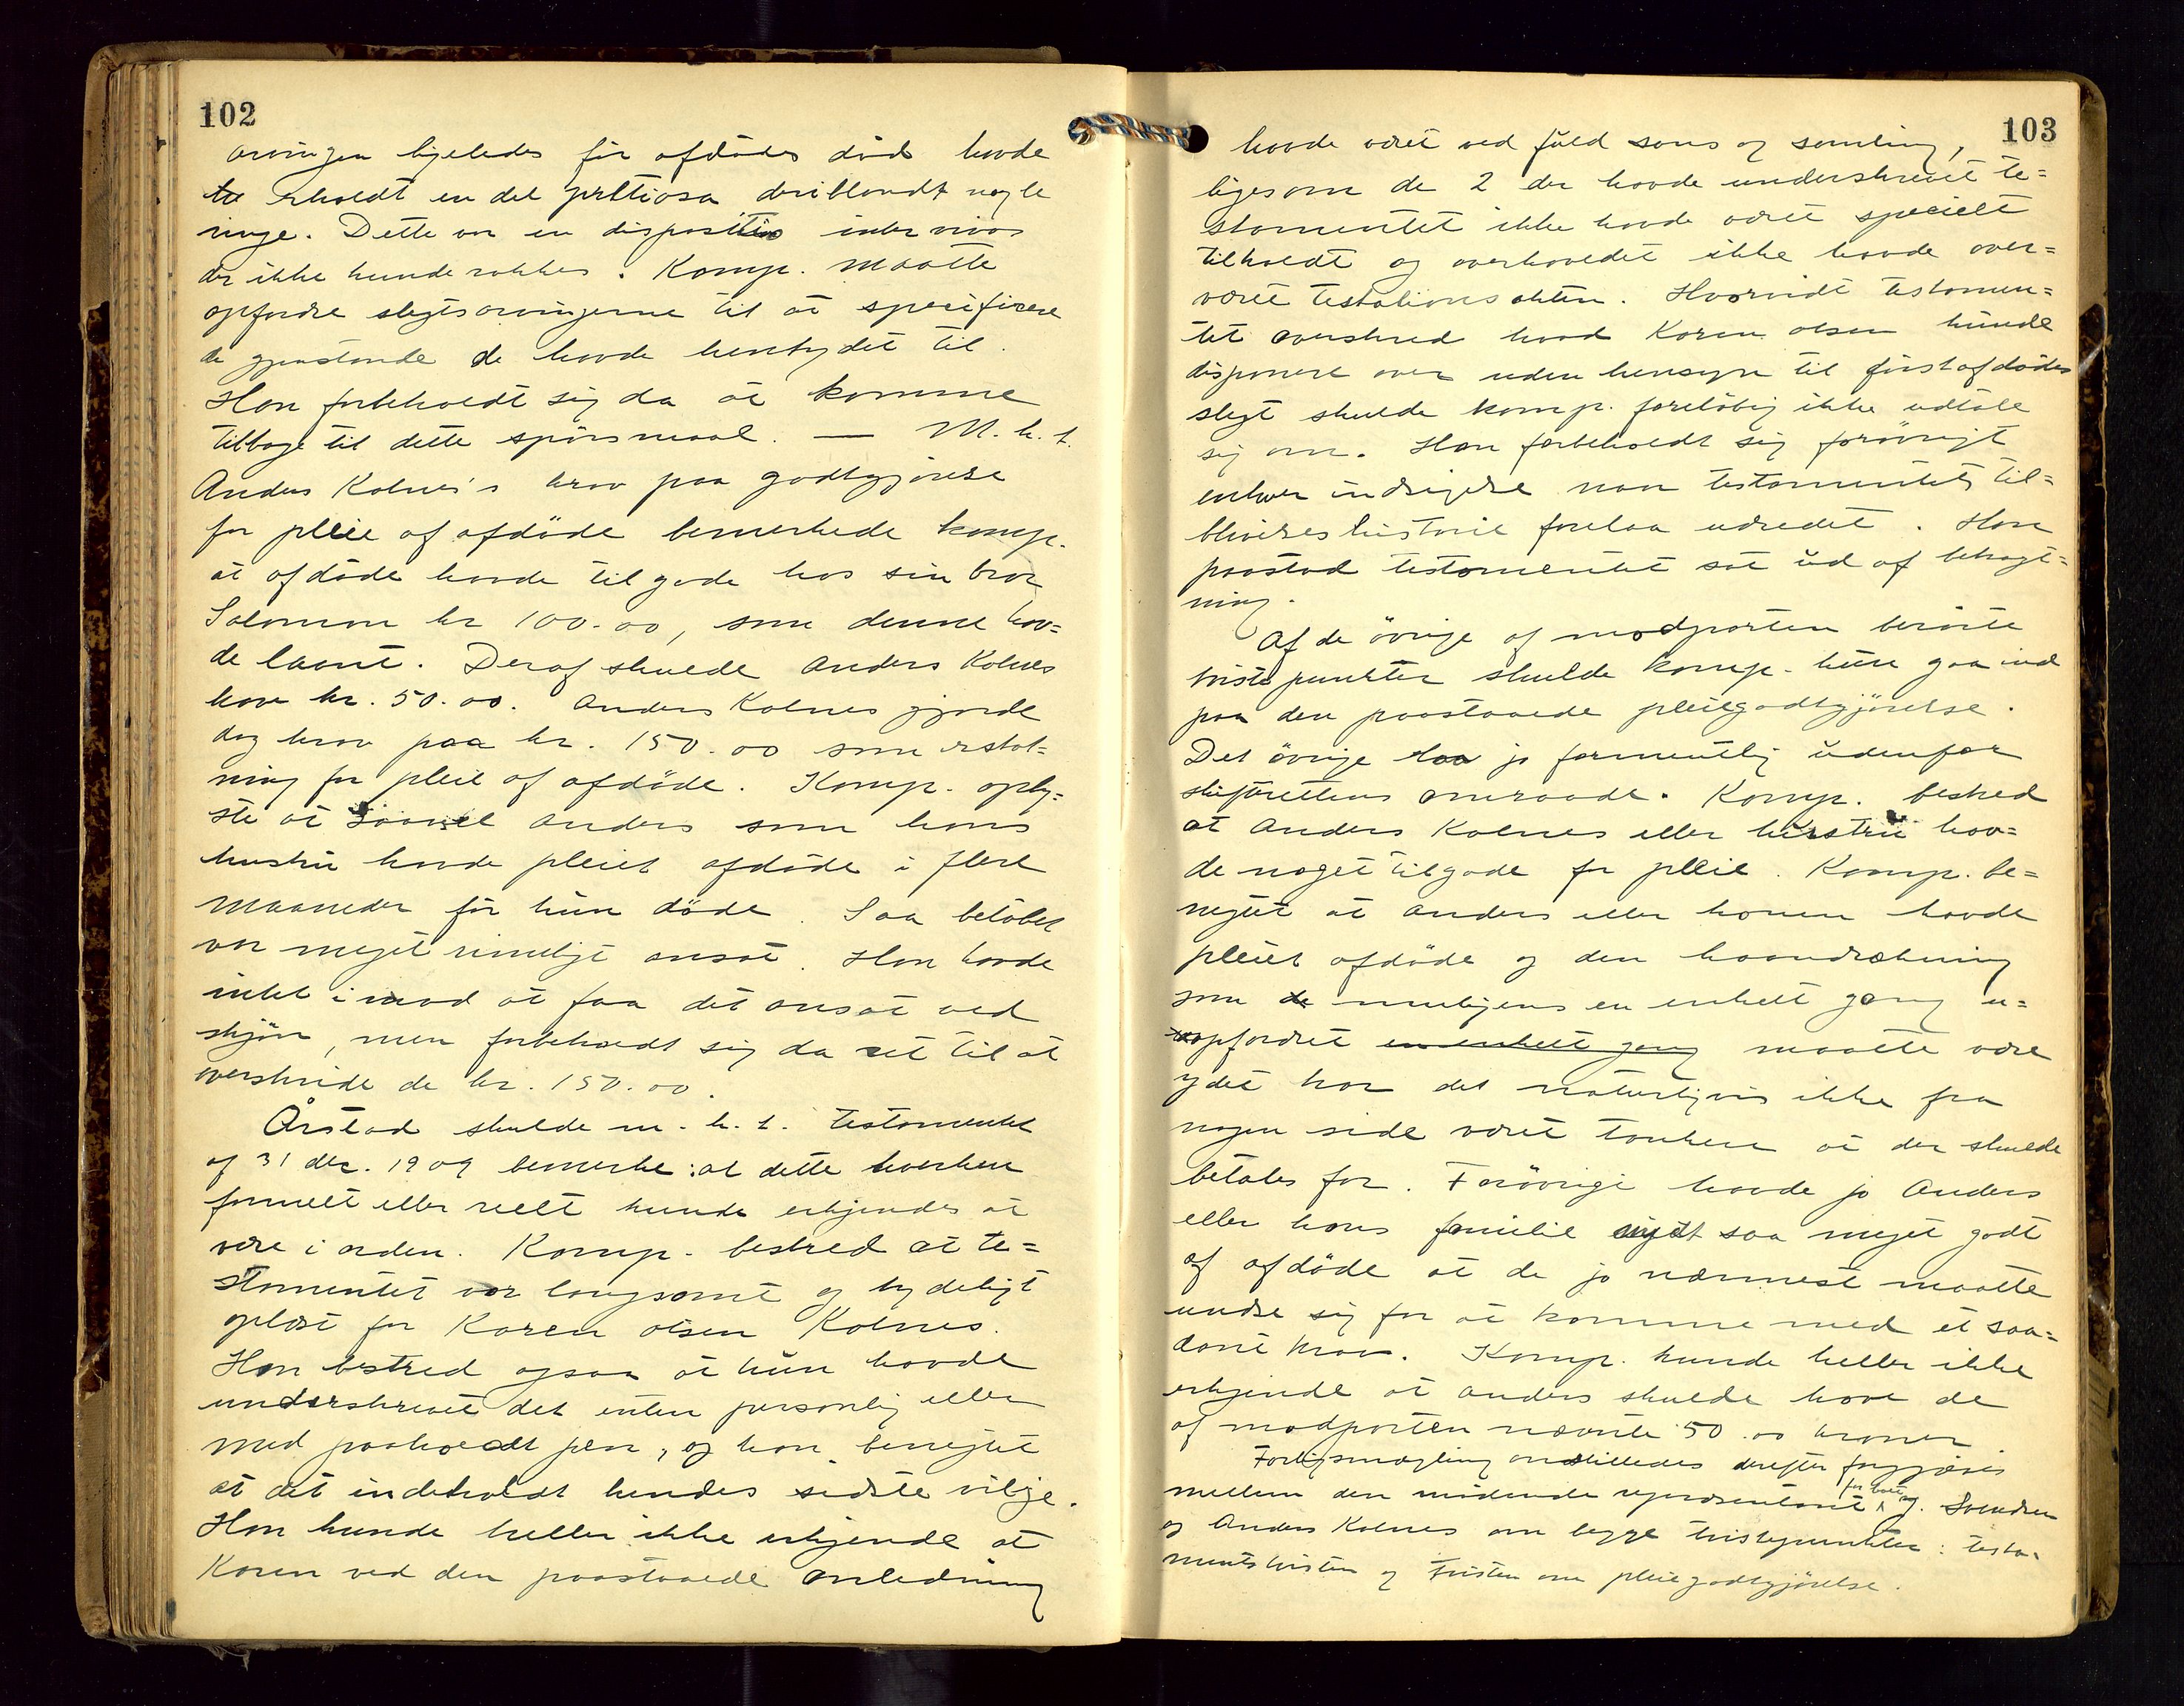 102
arvingen ligeledes før afdødes død havde
erholdt en del prettiosa deriblandt nogle
ringe. Dette var en disposition inter vivos
der ikke kunde rokkes. Komp. maatte
opfordre slegtsarvingerne til at specificere
de gjenstande de havde hentydet til.
Han forbeholdt sig da at komme
tilbage til dette spørsmaal. — M.h.t.
Anders Kolnes's krav paa godtgjørelse
for pleie af afdøde bemerkede komp.
at afdøde havde tilgode hos sin bror
Salomon kr 100.00, som denne hav=
de laant. Deraf skulde Anders Kolnes
have kr. 50.00. Anders Kolnes gjorde
dog krav paa kr. 150.00 som erstat=
ning for pleie af afdøde. Komp. oply=
ste at saavel Anders som hans
hustru havde pleiet afdøde i flere
maaneder før hun døde. Saa beløbet
var meget rimeligt ansat. Han havde
intet imod at faa det ansat ved
skjøn, men forbeholdt sig da ret til at
overskride de kr. 150.00.
Årstad skulde m.h.t. testamentet
af 31 dec. 1909 bemerke: at dette hverken
formelt eller reelt kunde erkjendes at
være i orden. Komp. bestred at te=
stamentet var langsomt og tydeligt
oplæst for Karen Olsen Kolnes.
Han bestred ogsaa at hun havde
underskrevet det enten personlig eller
med paaholdt pen, og han benegtet
at det indeholdt hendes sidste vilje.
Han kunde heller ikke erkjende at
Karen ved den paastaaede anledning
103
havde været ved fuld sans og samling,
ligesom de 2 der havde underskrevet te=
stamentet ikke havde været specielt
tilkaldt og overhovedet ikke havde over=
været testationsakten. Hvorvidt testamen=
tet overskred hvad Karen Olsen kunde
disponere over uden hensyn til førstafdødes
slegt skulde komp. foreløbig ikke udtale
sig om. Han forbeholdt sig forøvrigt
enhver indsigelse naar testamentets til=
blivelseshistorie forelaa udredet. Han
paastod testamentet sat ud af betragt=
ning.
Af de øvrige af modparten berørte
tvistepunkter skulde komp. kun gaa ind
paa den paastaaede pleiegodtgjørelse.
Det øvrige laa jo formentlig udenfor
skifterettens omraade. Komp. bestred
at Anders Kolnes eller hustru hav=
de noget tilgode for pleie. Komp. be=
negtet at Anders eller konen havde
pleiet afdøde og den haandrækning
som muligens en enkelt gang u=
opfordret en enkelt gang maatte være
ydet har det naturligvis ikke fra
nogen side været tanken at der skulde
betales for. Forøvrigt havde jo Anders
eller hans familie nydt saa meget godt
af afdøde at de jo nærmest maatte
undse sig for at komme med et saa=
dant krav. Komp. kunde heller ikke
erkjende at Anders skulde have de
af modparten nævnte 50.00 kroner.
Forligsmægling anstilledes derefter forgjæves
mellem den mødende repræsentant for boet og Svendsen
og Anders Kolnes om begge tvistepunkter: testa=
mentstvisten og tvisten om pleiegodtgjørelse.